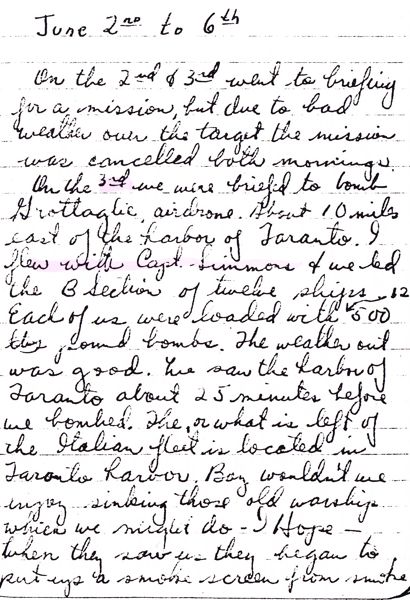 June 2nd to 6th
On the 2nd & 3rd went to briefing
for a mission, but due to bad
weather over the target the mission
was cancelled both mornings.
On the 3rd we were briefed to bomb
Grottaglie, airdrone. About 10 miles
east of the harbor of Taranto. I
flew with Capt. Simmons & we led
the B Section of twelve ships.
Each of us were loaded with 12 500
pound bombs. The weather out
was good. We saw the harbor of
Taranto about 25 minutes before
we bombed. The, or what is left of
the Italian fleet is located in
Taranto harbor. Boy wouldn't we
enjoy sinking those old warship
which we might do - I Hope -
When they saw us they began to
put up a smoke screen from smoke